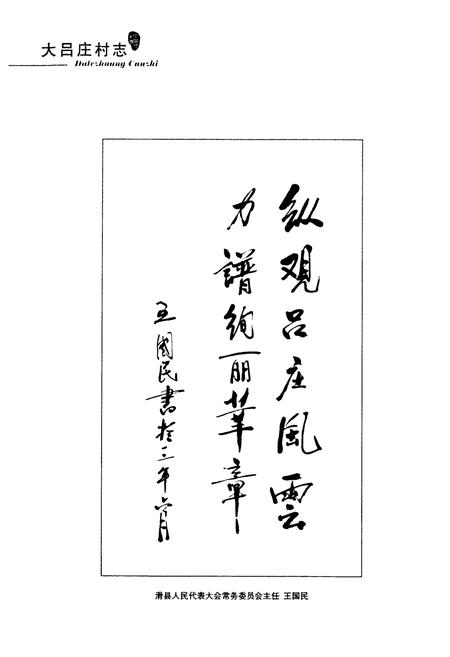 大吕庄村志
Dalvzhuang Cunzhi
纵观吕庄风雲
力譜绚丽華章
王國民書於三年六月
滑县人民代表大会常务委员会主任 王国民